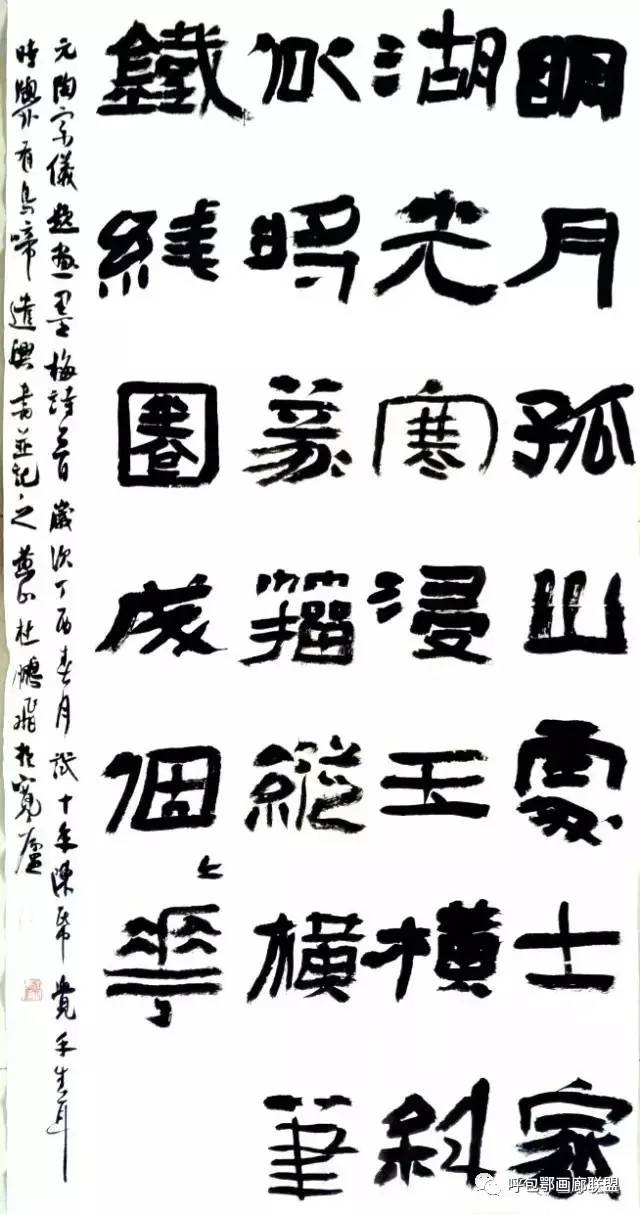 明月孤山處士家
湖光寒浸玉橫斜
似將篆籀縱橫筆
鐵綫圈成個〻華
元陶宗儀題畫墨梅詩一首歲次丁酉春月試十年陳帋覺手生耳
時牕外有鳥啼遣興書並記之杜鵬飛於寬廬
呼包鄂画廊联盟